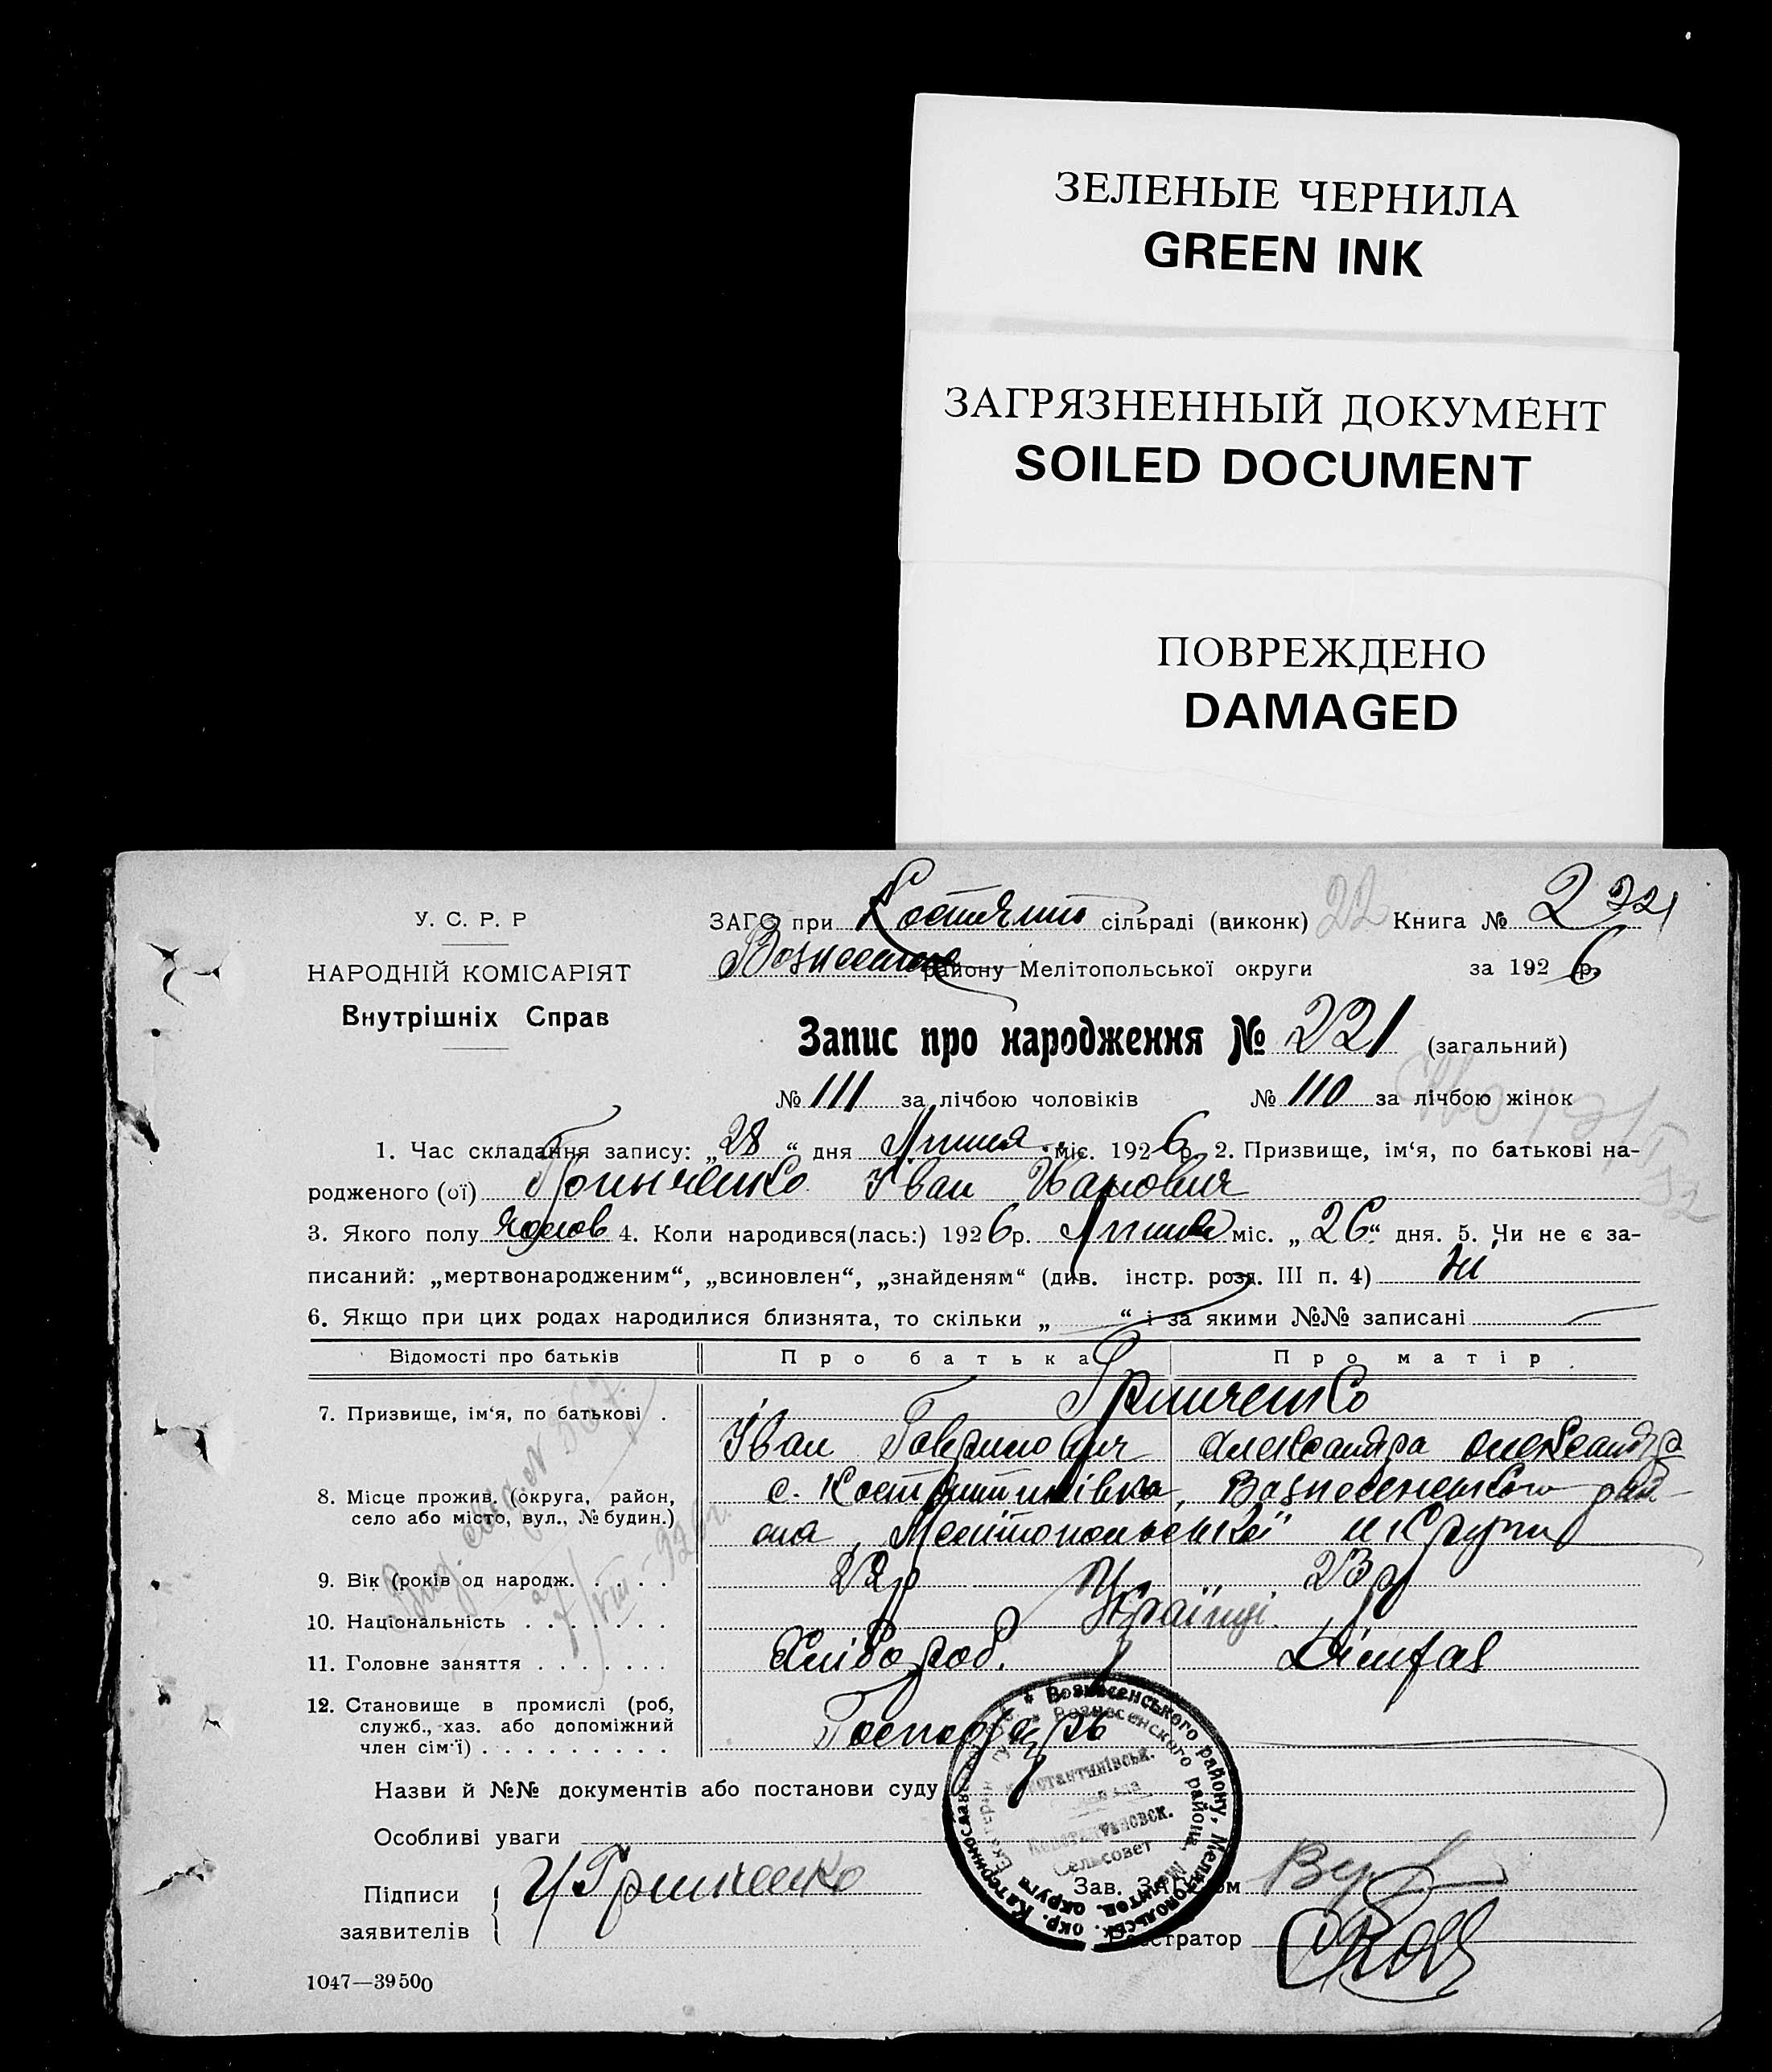 ЗЕЛЕНЫЕ ЧЕРНИЛА
GREEN INK
ЗАГРЯЗНЕННЫЙ ДОКУМЕНТ
SOILED DOCUMENT
ПОВРЕЖДЕНО
DAMAGED
У. С. Р. Р
НАРОДНІЙ КОМІСАРІЯТ
Внутрішніх Справ
ЗАГС при сільраді (виконк) 22 Книга № 2 221
району Мелітопольської округи за 1926 р.
Запис про народження № 221 (загальний)
№ 111 за лічбою чоловіків № 110 за лічбою жінок
1. Час складання запису: „28“ дня Липня міс. 1926 р. 2. Призвище, ім‘я, по батькові на-
родженого (ої) Іван Іванович
3. Якого полу 4. Коли народився(лась:) 1926 р. Липня міс. „26“ дня. 5. Чи не є за-
писаний: „мертвонародженим“, „всиновлен“, „знайденям“ (див. інстр. розд. III п. 4) ні
6. Якщо при цих родах народилися близнята, то скільки „ “ і за якими №№ записані
Відомості про батьків Про батька Про матір
7. Призвище, ім‘я, по батькові . Гринченко
Іван Гаврилович Александра Олександр
8. Місце прожив. (округа, район, село або місто, вул., № будин.) с. Костянтинівка, Вознесенського рай-
она, Мелітопольської округи
9. Вік (років од народж. . . . . 23 р
10. Національність . . . . . . . Українці.
11. Головне заняття . . . . . . . Хлібороб.
12. Становище в промислі (роб, служб., хаз. або допоміжний член сім‘ї) . . . . . . . . . Господарь
Назви й №№ документів або постанови суду
Особливі уваги
Підписи заявителів { Гринченко
Зав. ЗАГСом
Реєстратор
Вознесенського району, Мелітопольськ. окр. Катеринослав
Вознесенского района, Мелитоп. округа Екатерин
Костянтинівськ.
Константиновск.
Сельсовет
1047—39500